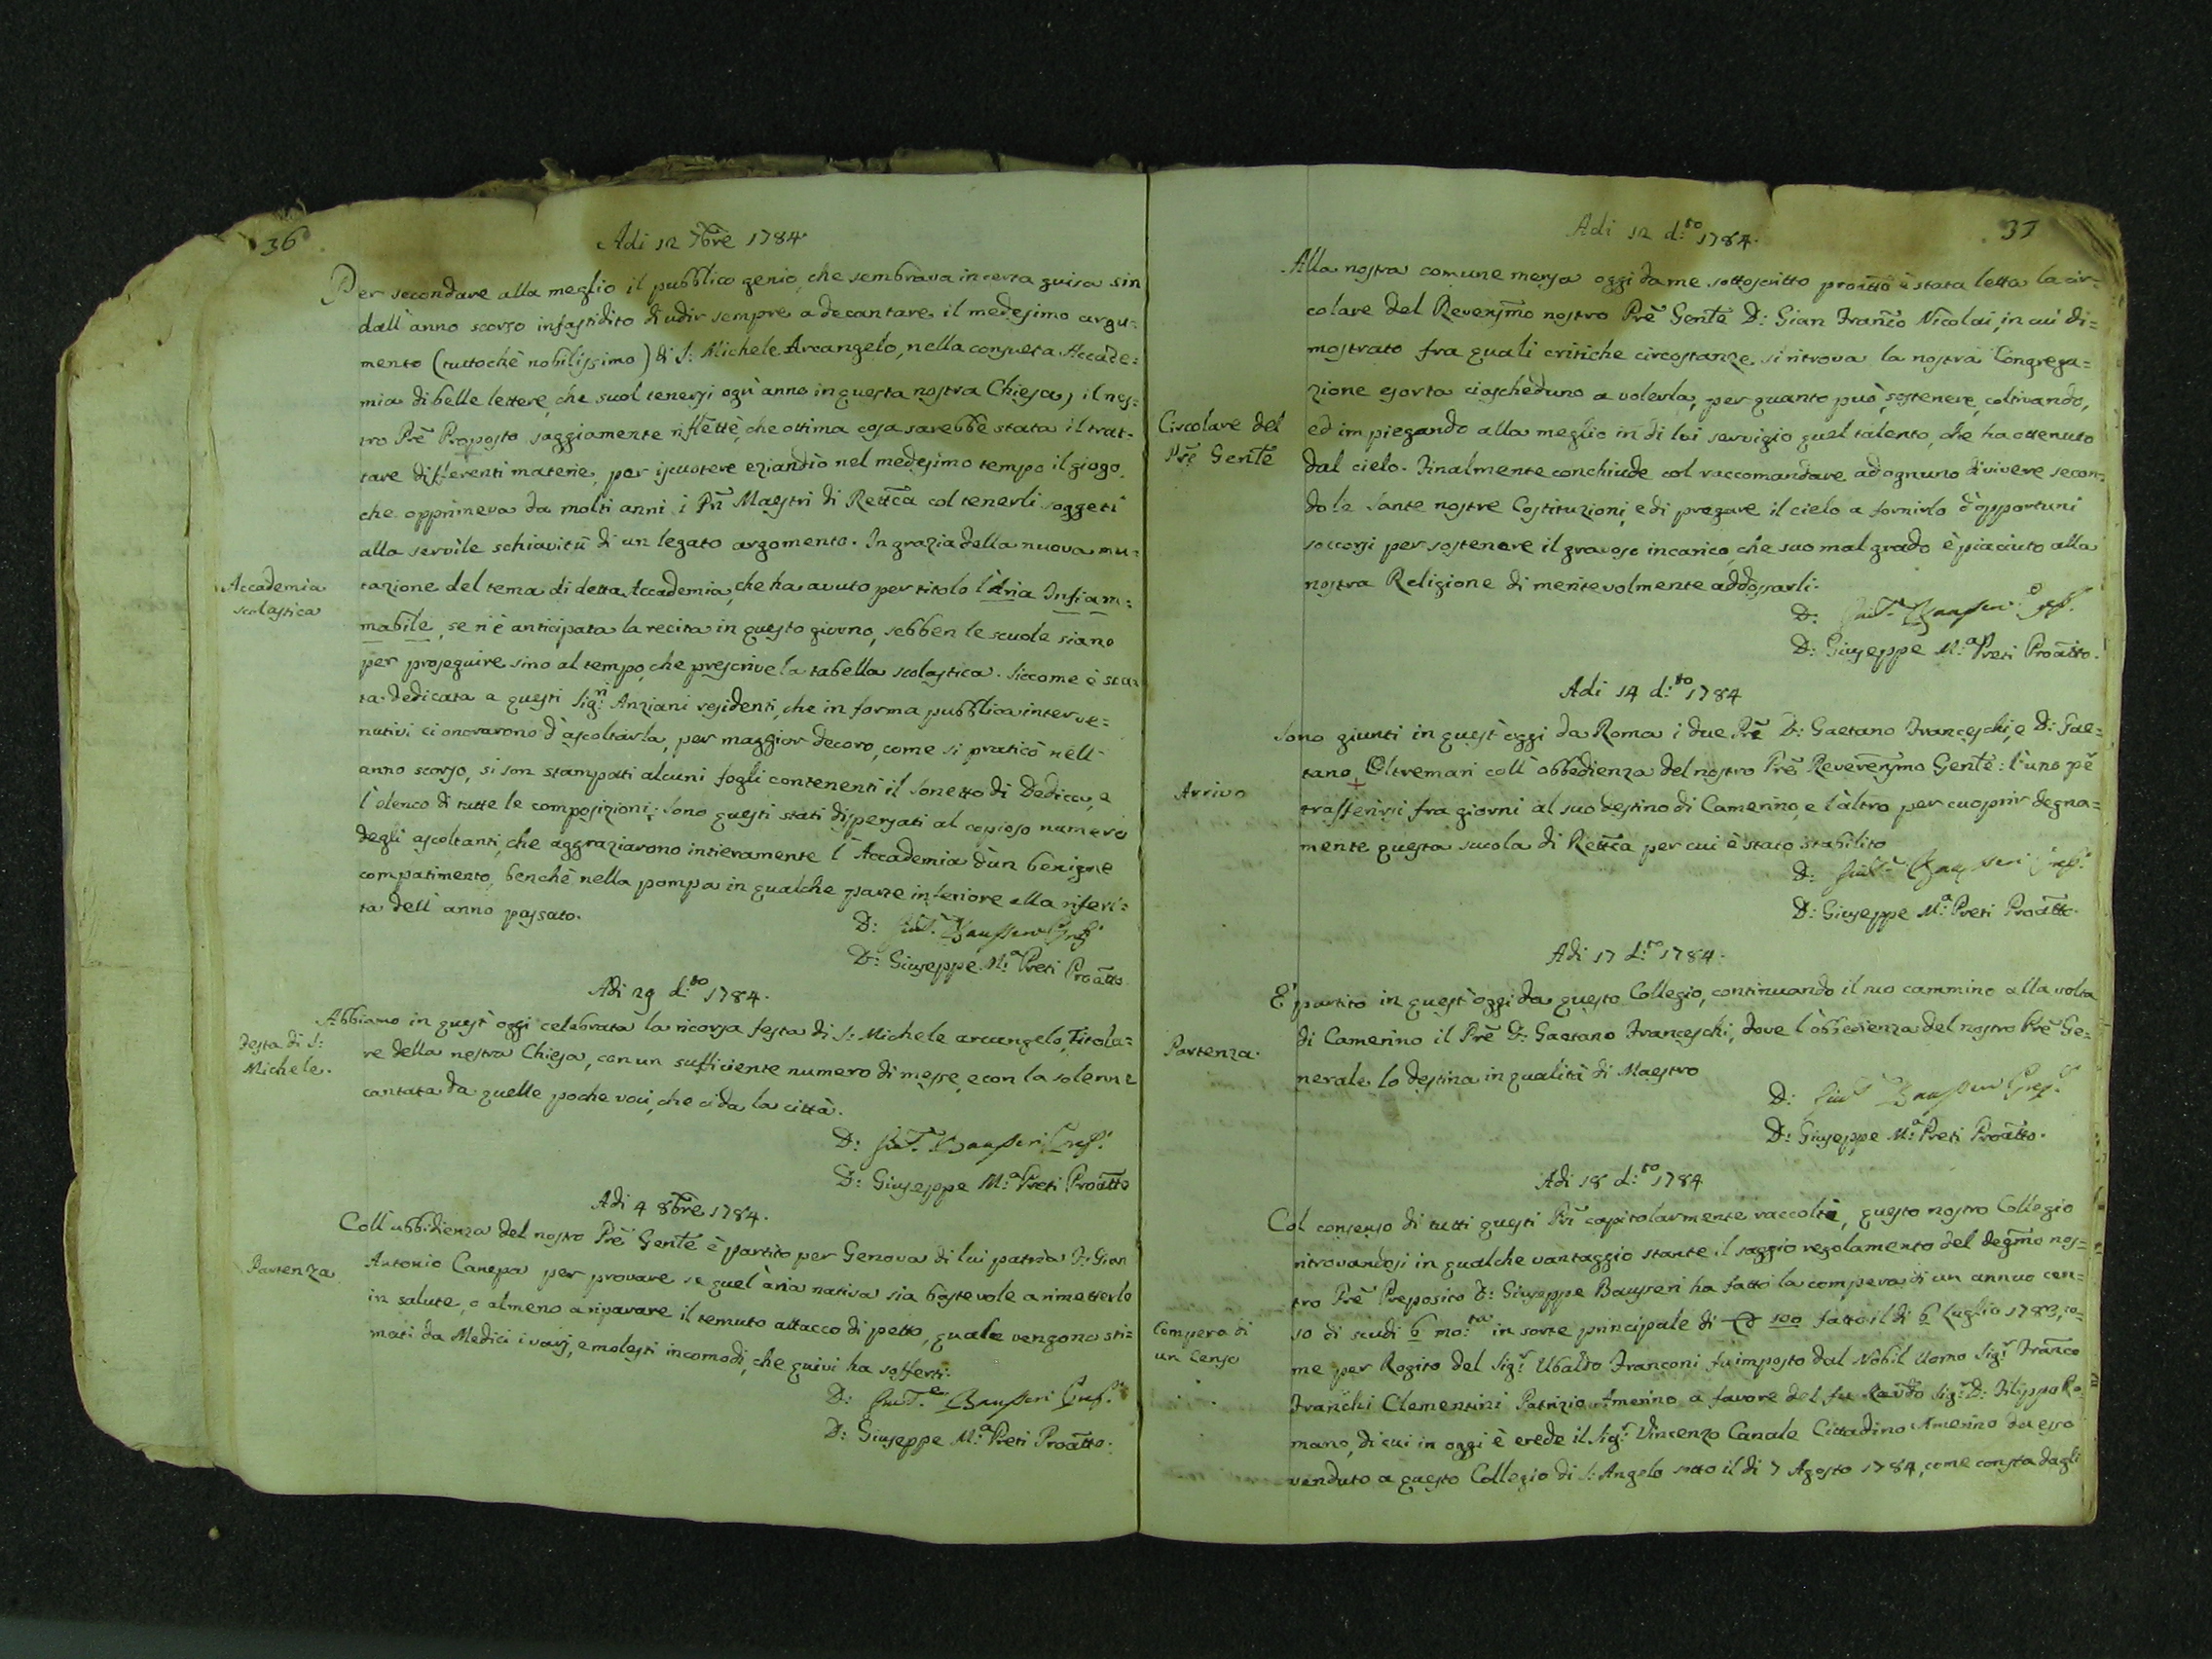 36
Adi 12 7bre 1784.
Per secondare alla meglio il pubblico genio, che sembrava in certa guisa sin
dall'anno scorso infastidito di udir sempre a decantare il medesimo argu-
mento (tuttochè nobilissimo) di S: Michele Arcangelo, nella consueta Accade-
mia di belle lettere, che suol tenersi ogn'anno in questa nostra Chiesa, il nos-
tro Prē Proposto saggiamente riflettè, che ottima cosa sarebbe stata il trat-
tare differenti materie, per iscuotere eziandio nel medesimo tempo il giogo,
che opprimeva da molti anni i Pri Maestri di Rettca col tenerli soggetti
alla servile schiavitù di un legato argomento. In grazia della nuova mu-
tazione del tema di detta Accademia, che ha avuto per titolo l'Aria Infiam-
mabile, se n'è anticipata la recita in questo giorno, sebben le scuole siano
per proseguire sino al tempo, che prescrive la tabella scolastica. Siccome è sta-
ta dedicata a questi Sig:ri Anziani residenti, che in forma pubblica interve-
nutivi ci onorarono d'ascoltarla, per maggior decoro, come si praticò nell'
anno scorso, si son stampati alcuni fogli contenenti il Sonetto di Dedica, e
l'elenco di tutte le composizioni; sono questi stati dispensati al copioso numero
degli ascoltanti, che aggraziarono intieramente l'Accademia d'un benigno
compatimento, benchè nella pompa in qualche parte inferiore alla riferi-
ta dell'anno passato.
Accademia
scolastica
D: Bausseri
D: Giuseppe M:a Preti Proatto
Adi 29 d:to 1784.
Abbiamo in quest'oggi celebrata la ricorsa festa di S: Michele arcangelo, Titola-
re della nostra Chiesa, con un sufficiente numero di messe, e con la solenne
cantata da quelle poche voci, che ci da la città.
Festa di S:
Michele.
D: Bausseri
D: Giuseppe M:a Preti Proatto
Adi 4 8bre 1784.
Coll'ubbidienza del nostro Prē Gente è partito per Genova di lui patria D: Gian
Antonio Canepa per provare se quel'aria nativa sia bastevole a rimetterlo
in salute, o almeno a riparare il temuto attacco di petto, quale vengono sti-
mati da Medici i varj, e molesti incomodi, che quivi ha sofferti.
Partenza
D: Bausseri
D: Giuseppe M:a Preti Proatto.
37
Adi 12 d:to 1784.
Alla nostra comune mensa oggi da me sottoscritto proatto è stata letta la cir-
colare del Reverysmo nostro Prē Gente D: Gian Franco Nicolai, in cui di-
mostrato fra quali critiche circostanze si ritrova la nostra Congrega-
zione esorta ciascheduno a volerla, per quanto può, sostenere, coltivando,
ed impiegando alla meglio in di lei servigio quel talento, che ha ottenuto
dal cielo. Finalmente conchiude col raccomandare ad ognuno di vivere secon-
do le Sante nostre Costituzioni, e di pregare il cielo a fornirlo d'opportuni
soccorsi per sostenere il gravoso incarico, che suo mal grado è piaciuto alla
nostra Religione di meritevolmente addossarli.
Circolare del
Prē Gente
D: Bausseri
D: Giuseppe M:a Preti Proatto.
Adi 14 d:to 1784
Sono giunti in quest'oggi da Roma i due Prē D: Gaetano Franceschi, e D: Gae-
tano Oltremari coll'obbedienza del nostro Prē Reverenysmo Gente: l'uno pē
trasferirsi fra giorni al suo destino di Camerino, e l'altro per cuoprir degna-
mente questa scuola di Rettca per cui è stato stabilito
Arrivo
D: Bausseri
D: Giuseppe M:a Preti Proatto.
Adi 17 d:to 1784.
E' partito in quest'oggi da questo Collegio, continuando il suo cammino alla volta
di Camerino il Prē D: Gaetano Franceschi, dove l'obbedienza del nostro Prē Ge-
nerale lo destina in qualità di Maestro
Partenza.
D: Bausseri
D: Giuseppe M:a Preti Proatto.
Adi 18 d:to 1784
Col consenso di tutti questi Pri capitolarmente raccolti, questo nostro Collegio
ritrovandosi in qualche vantaggio stante il saggio regolamento del degmo nos-
tro Prē Preposito D: Giuseppe Bauseri ha fatto la compera di un annuo cen-
so di scudi 6 mo:ta in sorte principale di 100 fatto il di 6 Luglio 1780, co-
me per Rogito del Sig:r Ubaldo Franconi fu imposto dal Nobil Uomo Sig:r Franco
Franchi Clementini Patrizio Amerino a favore del fu Revdo Sig:r D: Filippo Ro-
mano, di cui in oggi è erede il Sig:r Vincenzo Canale Cittadino Amerino da esso
venduto a questo Collegio di S: Angelo sotto il di 7 Agosto 1784, come consta dagli
Compera di
un Censo